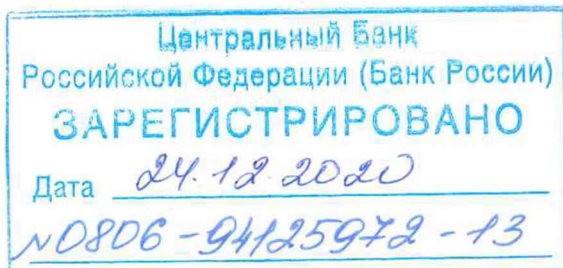 Центральный Банк
Российской Федерации (Банк России)
ЗАРЕГИСТРИРОВАНО
Дата 24.12.2020
№0806-94125972-13